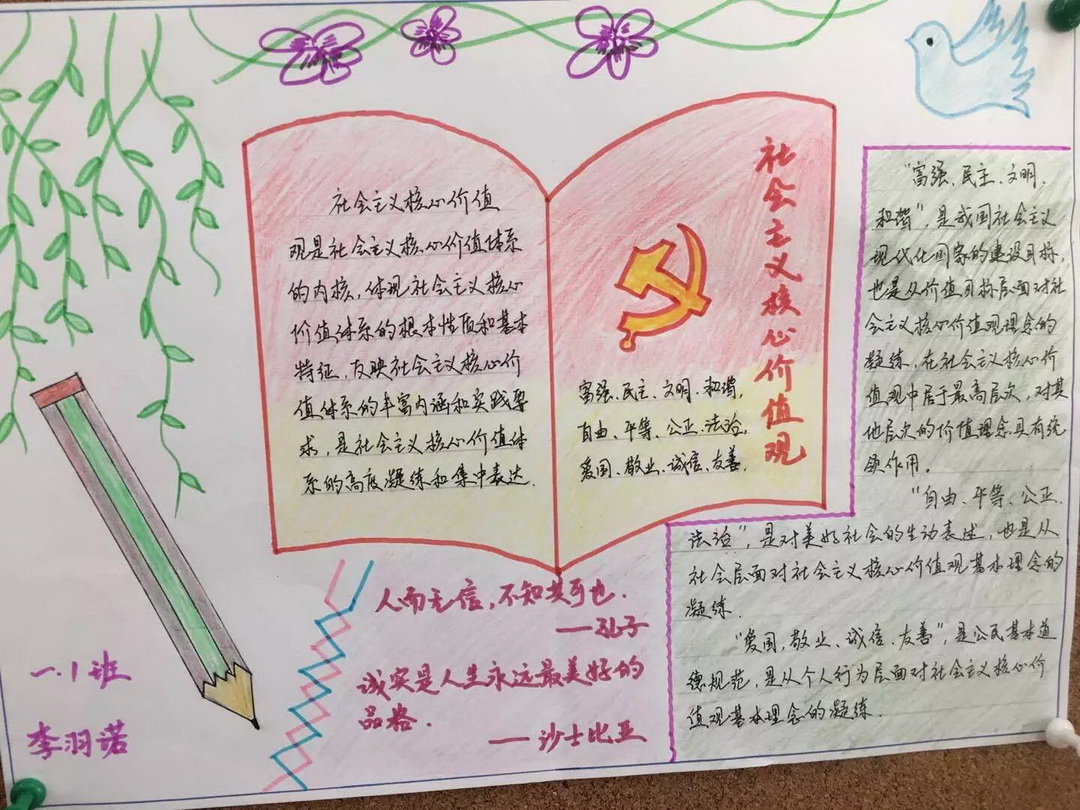 社会主义核心价值
观是社会主义核心价值体系
的内核，体现社会主义核心
价值体系的根本性质和基本
特征，反映社会主义核心价
值体系的丰富内涵和实践要
求，是社会主义核心价值体
系的高度凝练和集中表达．
社会主义核心价值观
富强、民主、文明、和谐，
自由、平等、公正、法治，
爱国、敬业、诚信、友善．
“富强、民主、文明、
和谐”，是我国社会主义
现代化国家的建设目标，
也是从价值目标层面对社
会主义核心价值观理念的
凝练，在社会主义核心价
值观中居于最高层次，对其
他层次的价值理念具有统
领作用。
“自由、平等、公正、
法治”，是对美好社会的生动表述，也是从
社会层面对社会主义核心价值观基本理念的
凝练．
“爱国、敬业、诚信、友善”，是公民基本道
德规范，是从个人行为层面对社会主义核心价
值观基本理念的凝练．
人而无信，不知其可也．
——孔子
诚实是人生永远最美好的
品格．
——沙士比亚
一.1班
李羽诺